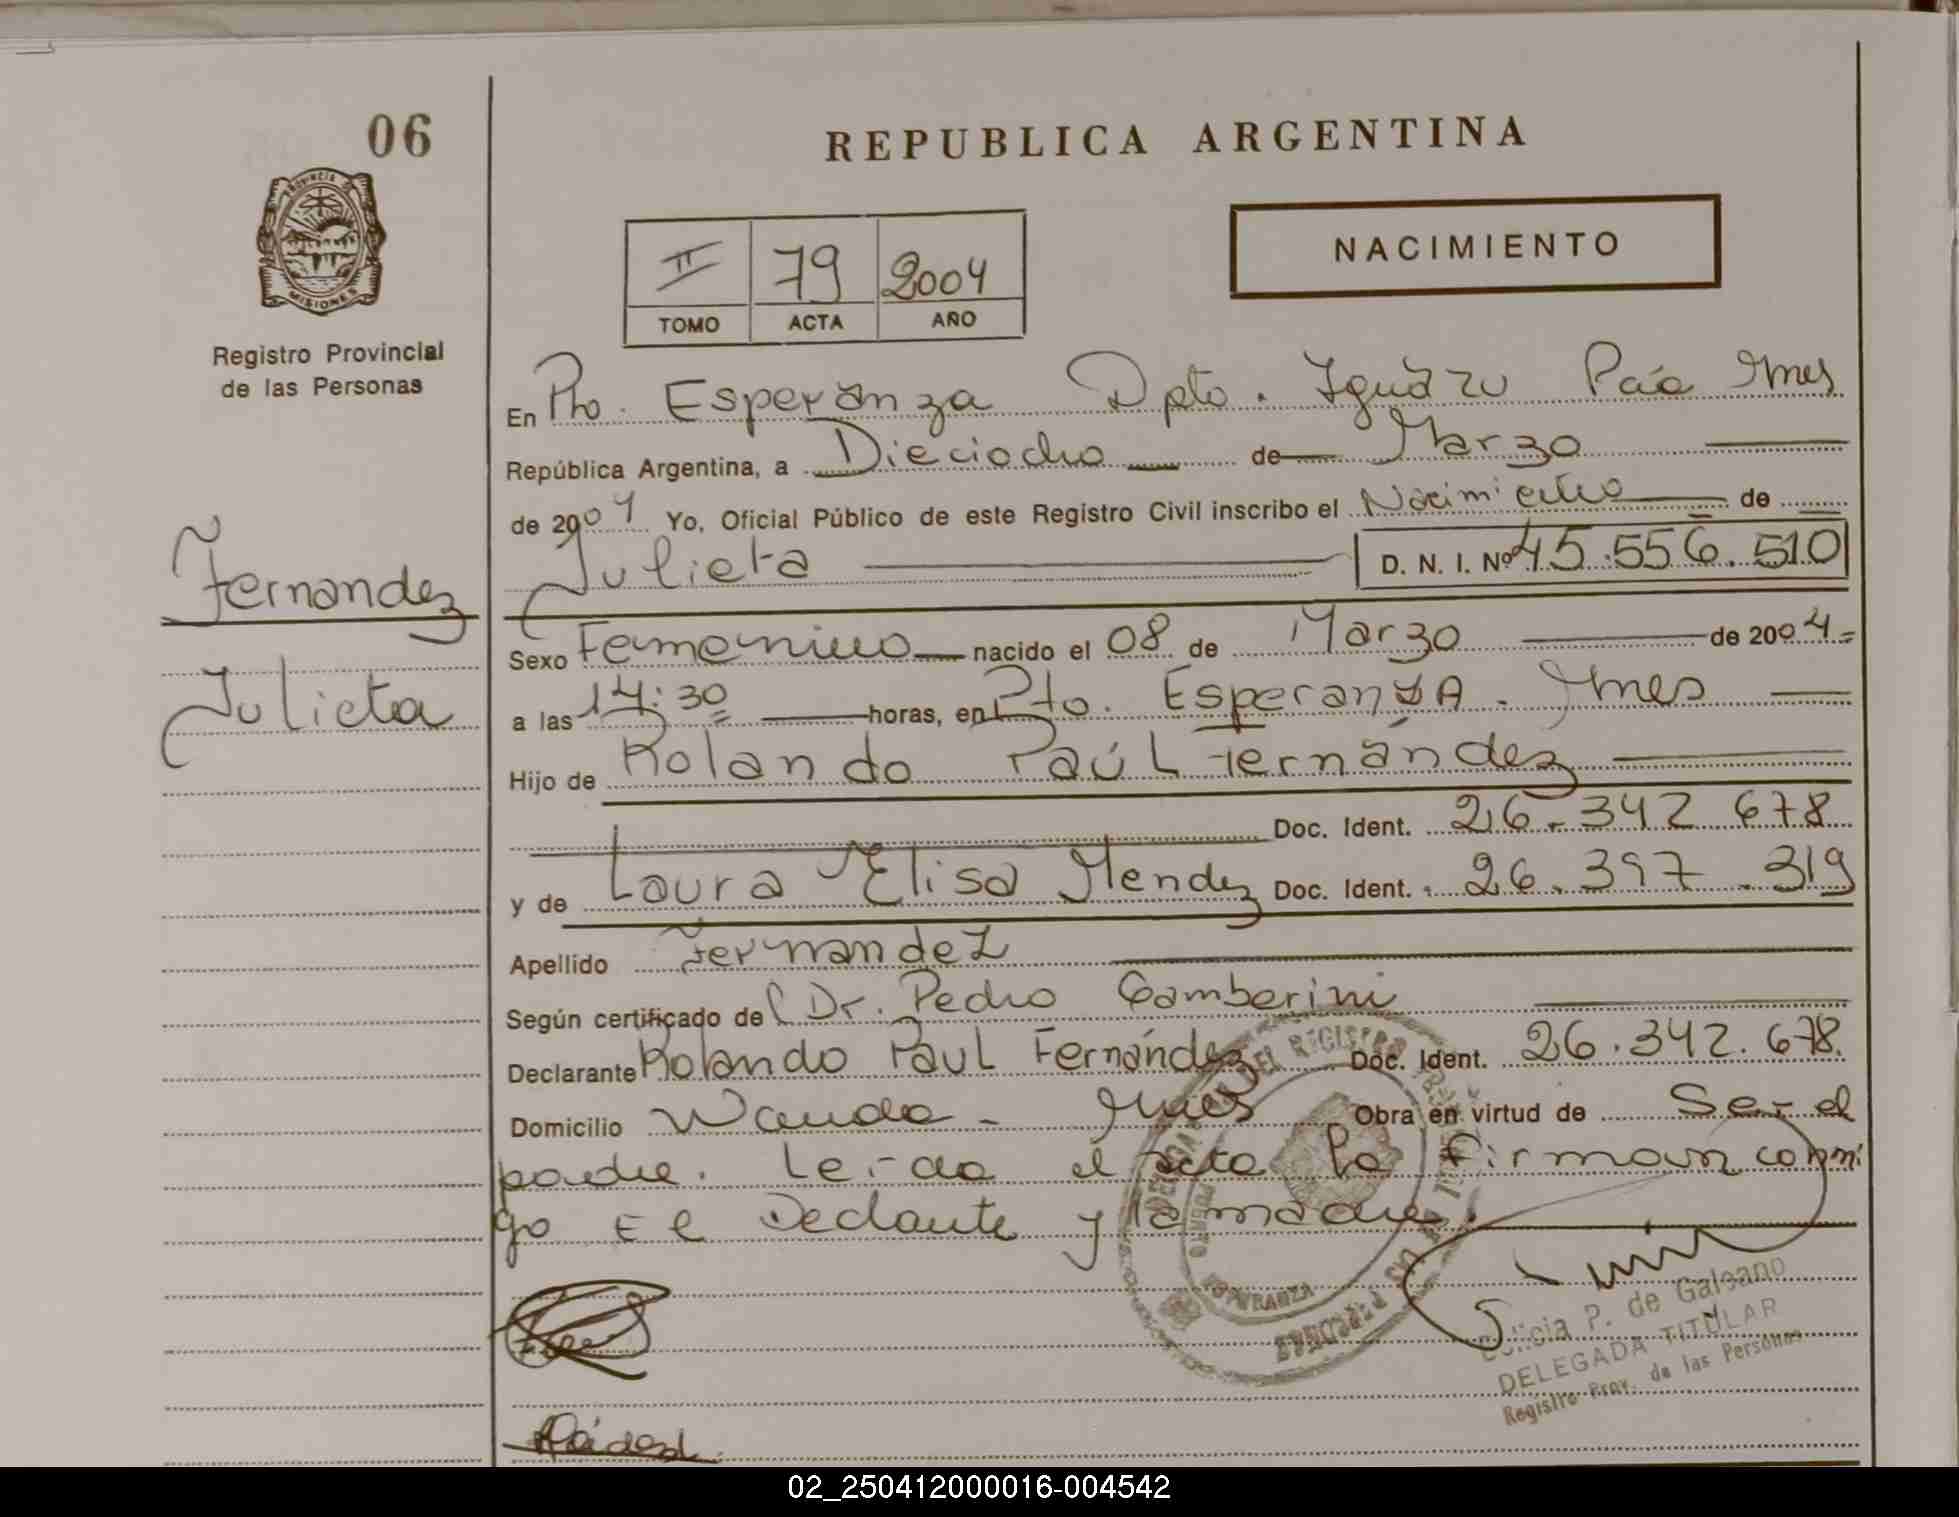 06
REPUBLICA ARGENTINA
PROVINCIA DE
MISIONES
Registro Provincial
de las Personas
II 79 2004
TOMO ACTA AÑO
NACIMIENTO
En Pto. Esperanza Dpto. Iguazu Pcia Mnes
República Argentina, a Dieciocho de Marzo
de 2004 Yo, Oficial Público de este Registro Civil inscribo el Nacimiento de
Julieta D. N. I. Nº 45.556.510
Fernandez
Julieta
Sexo Femenino nacido el 08 de Marzo de 2004
a las 14:30 horas, en Pto. Esperanza. Mnes
Hijo de Rolando Paúl Fernández
Doc. Ident. 26.342 678
y de Laura Elisa Mendez Doc. Ident. 26.397.319
Apellido Fernandez
Según certificado de Dr. Pedro Gamberini
Declarante Rolando Paul Fernández Doc. Ident. 26.342.678.
Domicilio Wanda - Mnes Obra en virtud de Ser el
padre. Leida el acta la firman conmi
go El Declante y la madre.
DEL REGISTRO
PUERTO ESPERANZA
P. de Galeano
DELEGADA TITULAR
Registro Prov. de las Personas
02_250412000016-004542